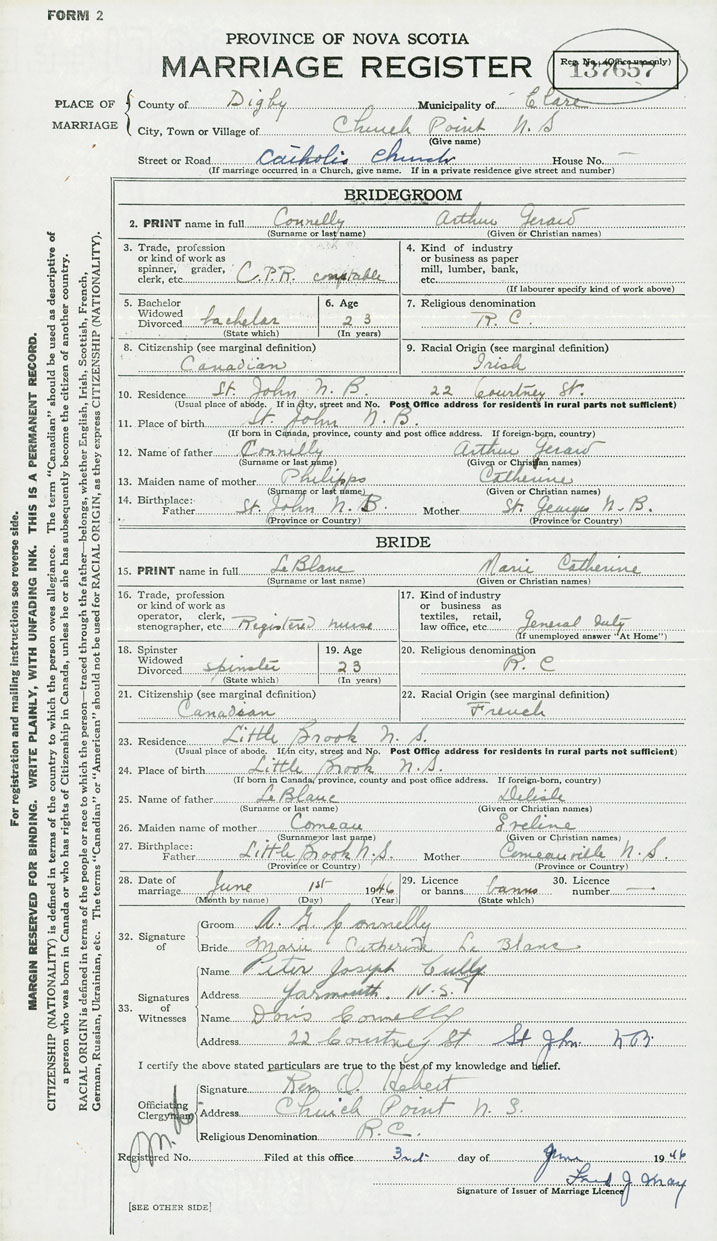 FORM 2
PROVINCE OF NOVA SCOTIA
MARRIAGE REGISTER
Reg. No. (Office use only)
137657
PLACE OF MARRIAGE
County of Digby Municipality of Clare
City, Town or Village of Church Point N.S
(Give name)
Street or Road Catholic Church House No. —
(If marriage occurred in a Church, give name. If in a private residence give street and number)
BRIDEGROOM
2. PRINT name in full Connelly Arthur Gerard
(Surname or last name) (Given or Christian names)
3. Trade, profession or kind of work as spinner, grader, clerk, etc. C.P.R. constable
4. Kind of industry or business as paper mill, lumber, bank, etc.
(If labourer specify kind of work above)
5. Bachelor Widowed Divorced bachelor
(State which)
6. Age 23
(In years)
7. Religious denomination R.C.
8. Citizenship (see marginal definition) Canadian
9. Racial Origin (see marginal definition) Irish
10. Residence St. John N.B. 22 Courtney St.
(Usual place of abode. If in city, street and No. Post Office address for residents in rural parts not sufficient)
11. Place of birth St. John N.B.
(If born in Canada, province, county and post office address. If foreign-born, country)
12. Name of father Connelly Arthur Gerard
(Surname or last name) (Given or Christian names)
13. Maiden name of mother Philipps Catherine
(Surname or last name) (Given or Christian names)
14. Birthplace: Father St. John N.B. Mother St. Georges N.B.
(Province or Country) (Province or Country)
BRIDE
15. PRINT name in full LeBlanc Marie Catherine
(Surname or last name) (Given or Christian names)
16. Trade, profession or kind of work as operator, clerk, stenographer, etc Registered nurse
17. Kind of industry or business as textiles, retail, law office, etc General duty
(If unemployed answer "At Home")
18. Spinster Widowed Divorced spinster
(State which)
19. Age 23
(In years)
20. Religious denomination R.C
21. Citizenship (see marginal definition) Canadian
22. Racial Origin (see marginal definition) French
23. Residence Little Brook N.S.
(Usual place of abode. If in city, street and No. Post Office address for residents in rural parts not sufficient)
24. Place of birth Little Brook N.S.
(If born in Canada, province, county and post office address. If foreign-born, country)
25. Name of father LeBlanc Delisle
(Surname or last name) (Given or Christian names)
26. Maiden name of mother Comeau Eveline
(Surname or last name) (Given or Christian names)
27. Birthplace: Father Little Brook N.S. Mother Comeauville N.S.
(Province or Country) (Province or Country)
28. Date of marriage June 1st 1946
(Month by name) (Day) (Year)
29. Licence or banns banns
(State which)
30. Licence number —
32. Signature of
Groom A. G. Connelly
Bride Marie Catherine Le Blanc
33. Signatures of Witnesses
Name Peter Joseph Cully
Address Yarmouth, N.S.
Name Doris Connelly
Address 22 Courtney St St John NB.
I certify the above stated particulars are true to the best of my knowledge and belief.
Officiating Clergyman
Signature Rev. Hebert
Address Church Point N.S.
Religious Denomination R.C.
Registered No. Filed at this office 3rd day of June 1946
Signature of Issuer of Marriage Licence
[SEE OTHER SIDE]
For registration and mailing instructions see reverse side.
MARGIN RESERVED FOR BINDING. WRITE PLAINLY, WITH UNFADING INK. THIS IS A PERMANENT RECORD.
CITIZENSHIP (NATIONALITY) is defined in terms of the country to which the person owes allegiance. The term "Canadian" should be used as descriptive of
a person who was born in Canada or who has rights of Citizenship in Canada, unless he or she has subsequently become the citizen of another country.
RACIAL ORIGIN is defined in terms of the people or race to which the person—traced through the father—belongs, whether English, Irish, Scottish, French,
German, Russian, Ukrainian, etc. The terms "Canadian" or "American" should not be used for RACIAL ORIGIN, as they express CITIZENSHIP (NATIONALITY).